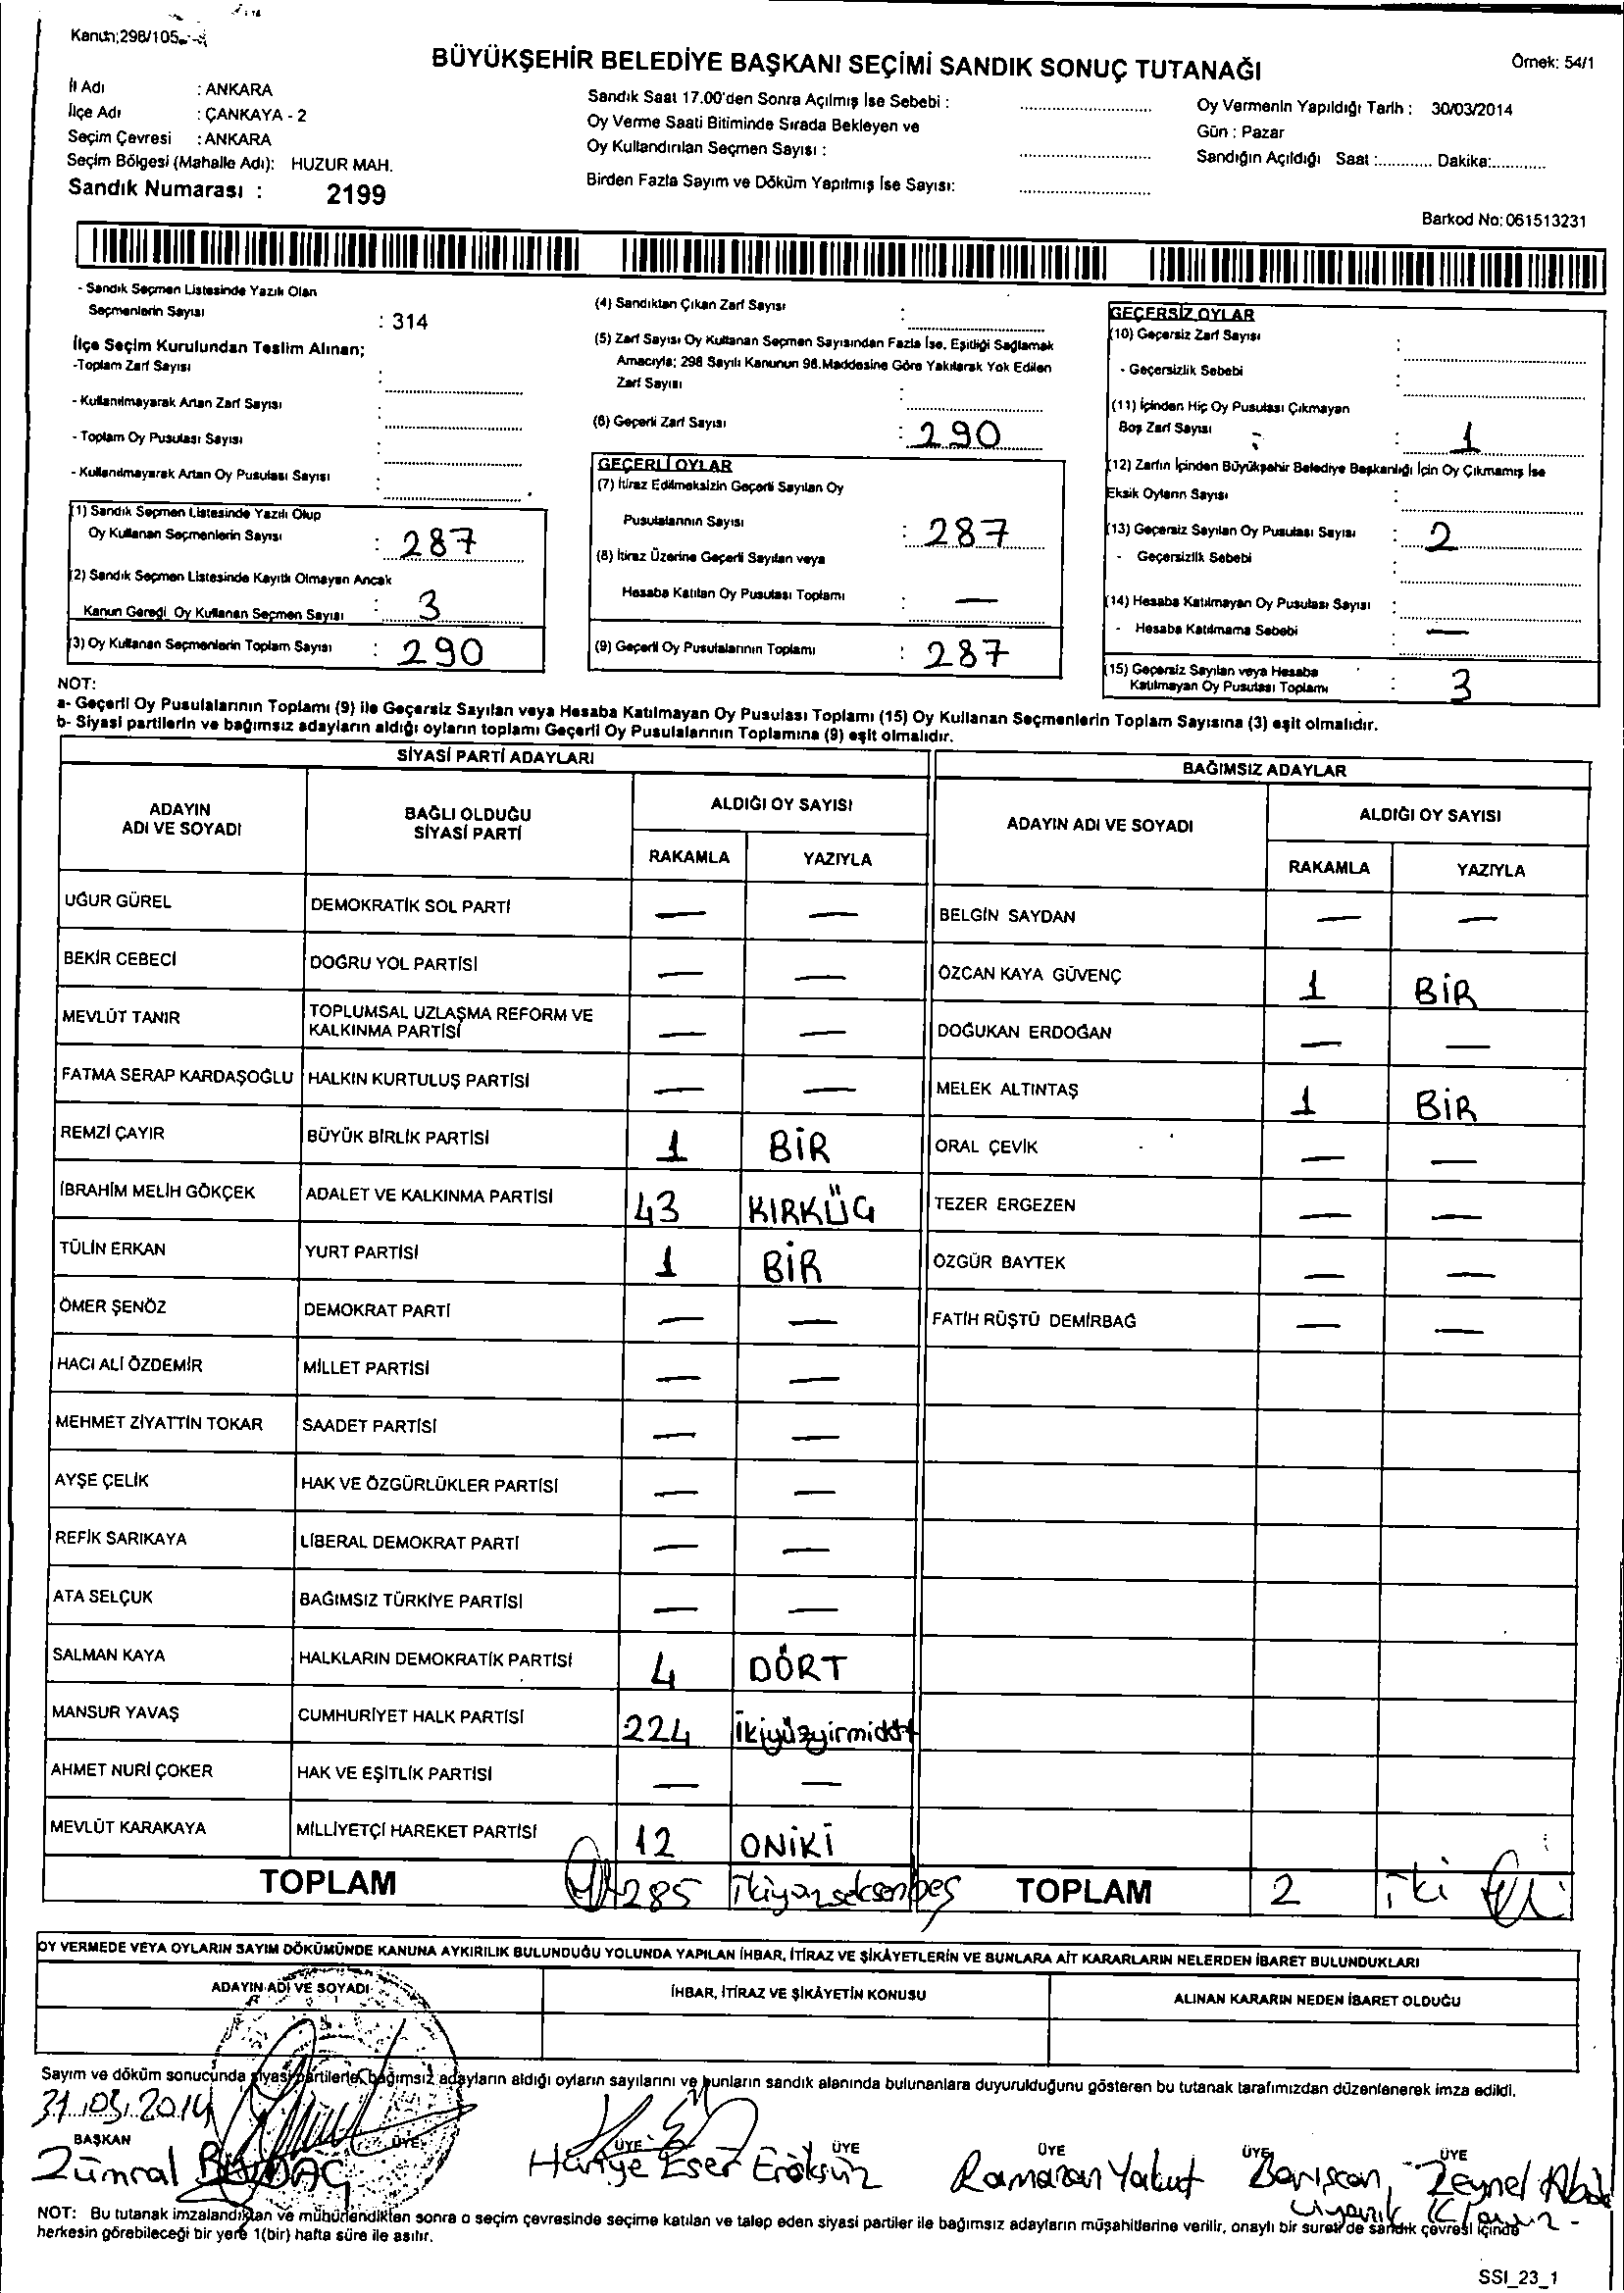 Kanun;298/105
BÜYÜKŞEHİR BELEDİYE BAŞKANI SEÇİMİ SANDIK SONUÇ TUTANAĞI
Örnek: 54/1
İl Adı : ANKARA
İlçe Adı : ÇANKAYA - 2
Seçim Çevresi : ANKARA
Seçim Bölgesi (Mahalle Adı): HUZUR MAH.
Sandık Numarası : 2199
Sandık Saat 17.00'den Sonra Açılmış İse Sebebi :
Oy Verme Saati Bitiminde Sırada Bekleyen ve
Oy Kullandırılan Seçmen Sayısı :
Birden Fazla Sayım ve Döküm Yapılmış İse Sayısı:
Oy Vermenin Yapıldığı Tarih : 30/03/2014
Gün : Pazar
Sandığın Açıldığı Saat :............ Dakika:............
Barkod No:061513231
- Sandık Seçmen Listesinde Yazılı Olan
Seçmenlerin Sayısı : 314
İlçe Seçim Kurulundan Teslim Alınan;
-Toplam Zarf Sayısı :
- Kullanılmayarak Artan Zarf Sayısı :
- Toplam Oy Pusulası Sayısı :
- Kullanılmayarak Artan Oy Pusulası Sayısı :
(1) Sandık Seçmen Listesinde Yazılı Olup
Oy Kullanan Seçmenlerin Sayısı : 287
(2) Sandık Seçmen Listesinde Kayıtlı Olmayan Ancak
Kanun Gereği Oy Kullanan Seçmen Sayısı : 3
(3) Oy Kullanan Seçmenlerin Toplam Sayısı : 290
(4) Sandıktan Çıkan Zarf Sayısı :
(5) Zarf Sayısı Oy Kullanan Seçmen Sayısından Fazla İse, Eşitliği Sağlamak
Amacıyla; 298 Sayılı Kanunun 98.Maddesine Göre Yakılarak Yok Edilen
Zarf Sayısı :
(6) Geçerli Zarf Sayısı : 290
GEÇERLİ OYLAR
(7) İtiraz Edilmeksizin Geçerli Sayılan Oy
Pusulalarının Sayısı : 287
(8) İtiraz Üzerine Geçerli Sayılan veya
Hesaba Katılan Oy Pusulası Toplamı : —
(9) Geçerli Oy Pusulalarının Toplamı : 287
GEÇERSİZ OYLAR
(10) Geçersiz Zarf Sayısı :
- Geçersizlik Sebebi :
(11) İçinden Hiç Oy Pusulası Çıkmayan
Boş Zarf Sayısı : 1
(12) Zarfın İçinden Büyükşehir Belediye Başkanlığı İçin Oy Çıkmamış İse
Eksik Oyların Sayısı :
(13) Geçersiz Sayılan Oy Pusulası Sayısı : 2
- Geçersizlik Sebebi :
(14) Hesaba Katılmayan Oy Pusulası Sayısı :
- Hesaba Katılmama Sebebi : —
(15) Geçersiz Sayılan veya Hesaba
Katılmayan Oy Pusulası Toplamı : 3
NOT:
a- Geçerli Oy Pusulalarının Toplamı (9) ile Geçersiz Sayılan veya Hesaba Katılmayan Oy Pusulası Toplamı (15) Oy Kullanan Seçmenlerin Toplam Sayısına (3) eşit olmalıdır.
b- Siyasi partilerin ve bağımsız adayların aldığı oyların toplamı Geçerli Oy Pusulalarının Toplamına (9) eşit olmalıdır.
SİYASİ PARTİ ADAYLARI
ADAYIN
ADI VE SOYADI
BAĞLI OLDUĞU
SİYASİ PARTİ
ALDIĞI OY SAYISI
RAKAMLA YAZIYLA
UĞUR GÜREL DEMOKRATİK SOL PARTİ — —
BEKİR CEBECİ DOĞRU YOL PARTİSİ — —
MEVLÜT TANIR TOPLUMSAL UZLAŞMA REFORM VE
KALKINMA PARTİSİ — —
FATMA SERAP KARDAŞOĞLU HALKIN KURTULUŞ PARTİSİ — —
REMZİ ÇAYIR BÜYÜK BİRLİK PARTİSİ 1 BİR
İBRAHİM MELİH GÖKÇEK ADALET VE KALKINMA PARTİSİ 43 KIRKÜÇ
TÜLİN ERKAN YURT PARTİSİ 1 BİR
ÖMER ŞENÖZ DEMOKRAT PARTİ — —
HACI ALİ ÖZDEMİR MİLLET PARTİSİ — —
MEHMET ZİYATTİN TOKAR SAADET PARTİSİ — —
AYŞE ÇELİK HAK VE ÖZGÜRLÜKLER PARTİSİ — —
REFİK SARIKAYA LİBERAL DEMOKRAT PARTİ — —
ATA SELÇUK BAĞIMSIZ TÜRKİYE PARTİSİ — —
SALMAN KAYA HALKLARIN DEMOKRATİK PARTİSİ 4 DÖRT
MANSUR YAVAŞ CUMHURİYET HALK PARTİSİ 224 İkiyüzyirmidört
AHMET NURİ ÇOKER HAK VE EŞİTLİK PARTİSİ — —
MEVLÜT KARAKAYA MİLLİYETÇİ HAREKET PARTİSİ 12 ONİKİ
TOPLAM 285 ikiyüzseksenbeş
BAĞIMSIZ ADAYLAR
ADAYIN ADI VE SOYADI
ALDIĞI OY SAYISI
RAKAMLA YAZIYLA
BELGİN SAYDAN — —
ÖZCAN KAYA GÜVENÇ 1 BİR
DOĞUKAN ERDOĞAN — —
MELEK ALTINTAŞ 1 BİR
ORAL ÇEVİK — —
TEZER ERGEZEN — —
ÖZGÜR BAYTEK — —
FATİH RÜŞTÜ DEMİRBAĞ — —
TOPLAM 2 iki
OY VERMEDE VEYA OYLARIN SAYIM DÖKÜMÜNDE KANUNA AYKIRILIK BULUNDUĞU YOLUNDA YAPILAN İHBAR, İTİRAZ VE ŞİKÂYETLERİN VE BUNLARA AİT KARARLARIN NELERDEN İBARET BULUNDUKLARI
ADAYIN ADI VE SOYADI İHBAR, İTİRAZ VE ŞİKÂYETİN KONUSU ALINAN KARARIN NEDEN İBARET OLDUĞU
Sayım ve döküm sonucunda siyasi partilerle, bağımsız adayların aldığı oyların sayılarını ve bunların sandık alanında bulunanlara duyurulduğunu gösteren bu tutanak tarafımızdan düzenlenerek imza edildi.
31.03.2014
BAŞKAN ÜYE ÜYE ÜYE ÜYE ÜYE ÜYE
Zümral Hüriye Eser Eröksüz Ramazan Yakut Barışcan Zeynel Abidin
Uyanık
NOT: Bu tutanak imzalandıktan ve mühürlendikten sonra o seçim çevresinde seçime katılan ve talep eden siyasi partiler ile bağımsız adayların müşahitlerine verilir, onaylı bir sureti de sandık çevresi içinde
herkesin görebileceği bir yere 1(bir) hafta süre ile asılır.
SSI_23_1